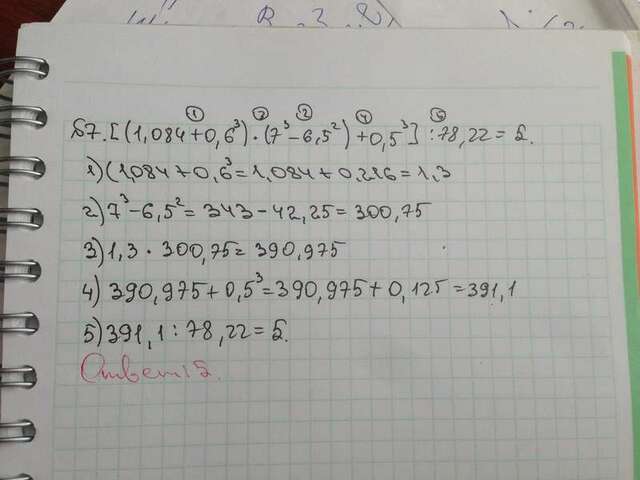 ① ② ② ④ ⑤
87. [(1,084+0,6³)·(7³-6,5²)+0,5³]:78,22=5.
1)(1,084+0,6³=1,084+0,216=1,3
2)7³-6,5²=343-42,25=300,75
3)1,3·300,75=390,975
4)390,975+0,5³=390,975+0,125=391,1
5)391,1:78,22=5.
Ответ:5.